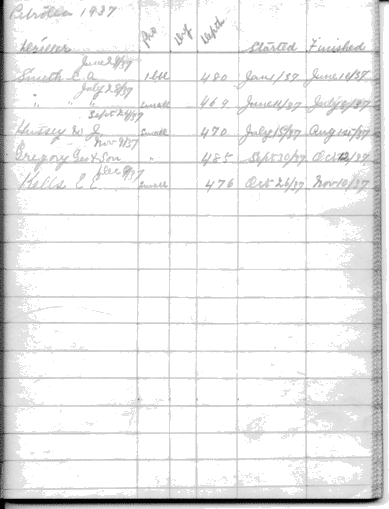 Petrolea 1937
Driller Pro Depth Started Finished
June 24/37
Smith C. A. 1 bbl 480 June 1/37 June 14/37
July 28/37
" " " small 469 June 16/37 July 8/37
Sept 24/37
Hussey W J. small 470 July 15/37 Aug 15/37
Nov 9/37
Gregory Geo & Son " 485 Sept 20/37 Oct 12/37
Dec 9/37
Kells E E. small 476 Oct 26/37 Nov 10/37